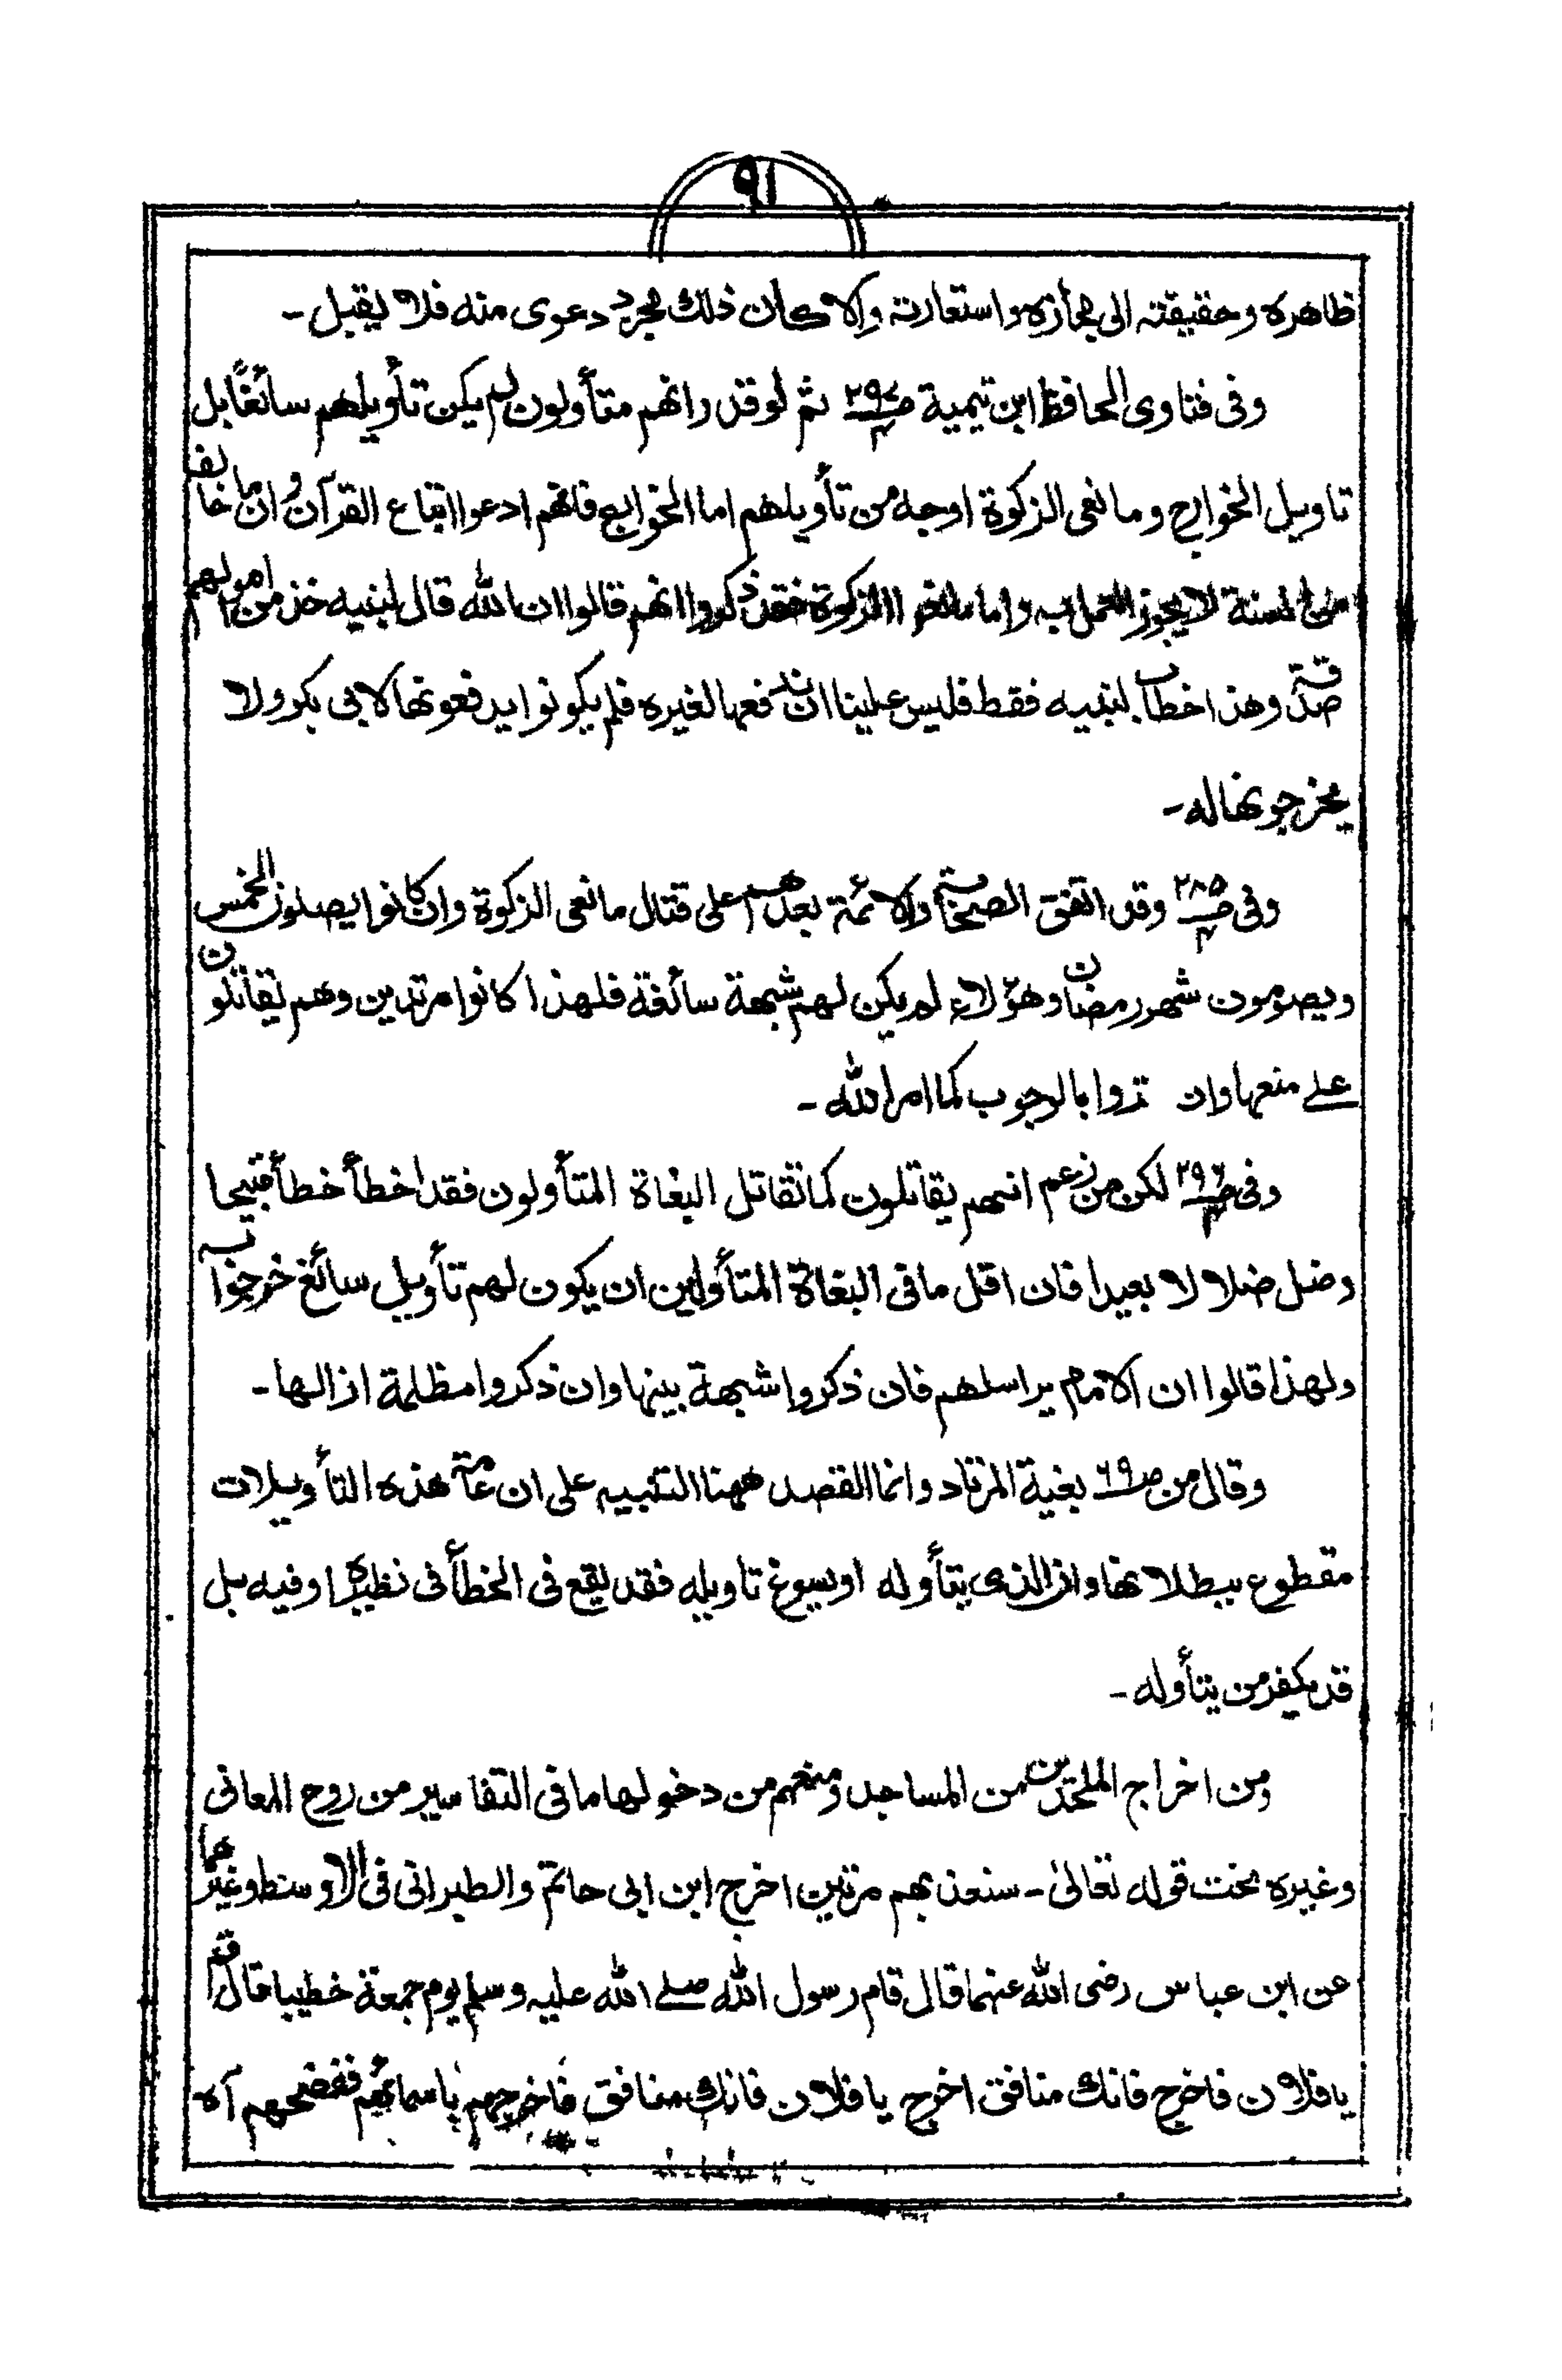 ٩١
ظاهره وحقيقته الى مجازه واستعارته والا كان ذلك مجرد دعوى منه فلا يقبل۔
وفى فتاوى الحافظ ابن تيمية ص٢٩٧ ٤ ثم لو قدر انهم متأولون لم يكن تأويلهم سائغًا بل
تاويل الخوارج ومانعى الزكوة اوجه من تأويلهم اما الخوارج فانهم ادعوا اتباع القرآن وان ما خالف
من السنة لا يجوز العمل به واما مانعوا الزكوة فقد ذكروا انهم قالوا ان الله قال لنبيه خذ من اموالهم
صدقة وهذا خطاب لنبيه فقط فليس علينا ان ندفعها لغيره فلم يكونوا يدفعونها لابى بكر ولا
يخرجونها له۔
وفى ص٢٨٥ ٤ وقد اتفق الصحابة والائمة بعدهم على قتال مانعى الزكوة وان كانوا يصلون الخمس
ويصومون شهر رمضان وهؤلاء لم يكن لهم شبهة سائغة فلهذا كانوا مرتدين وهم يقاتلون
على منعها وان قروا بالوجوب كما امر الله۔
وفى ص٢٩٦ ٤ لكن من زعم انهم يقاتلون كما تقاتل البغاة المتأولون فقد اخطأ خطأ قبيحا
وضل ضلالا بعيدا فان اقل ما فى البغاة المتأولين ان يكون لهم تأويل سائغ خرجوا به
ولهذا قالوا ان الامام يراسلهم فان ذكروا شبهة بينها وان ذكروا مظلمة ازالها۔
وقال من ص٦٩ بغية المرتاد وانما القصد ههنا التنبيه على ان عامة هذه التأويلات
مقطوع ببطلانها وان الذى يتأوله او يسوغ تاويله فقد يقع فى الخطأ فى نظيره او فيه بل
قد يكفر من يتأوله۔
ومن اخراج الملحدين من المساجد ومنعهم من دخولها ما فى التفاسير من روح المعانى
وغيره تحت قوله تعالىٰ۔ سنعذبهم مرتين اخرج ابن ابى حاتم والطبرانى فى الاوسط وغيرهما
عن ابن عباس رضى الله عنهما قال قام رسول الله صلے الله عليه وسلم يوم جمعة خطيبا فقال قم
يا فلان فاخرج فانك منافق اخرج يا فلان فانك منافق فاخرجهم باسمائهم ففضحهم آه